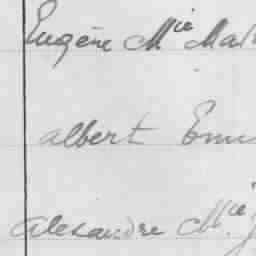 Eugène Mie Mal
albert Em
alexandre Mie J